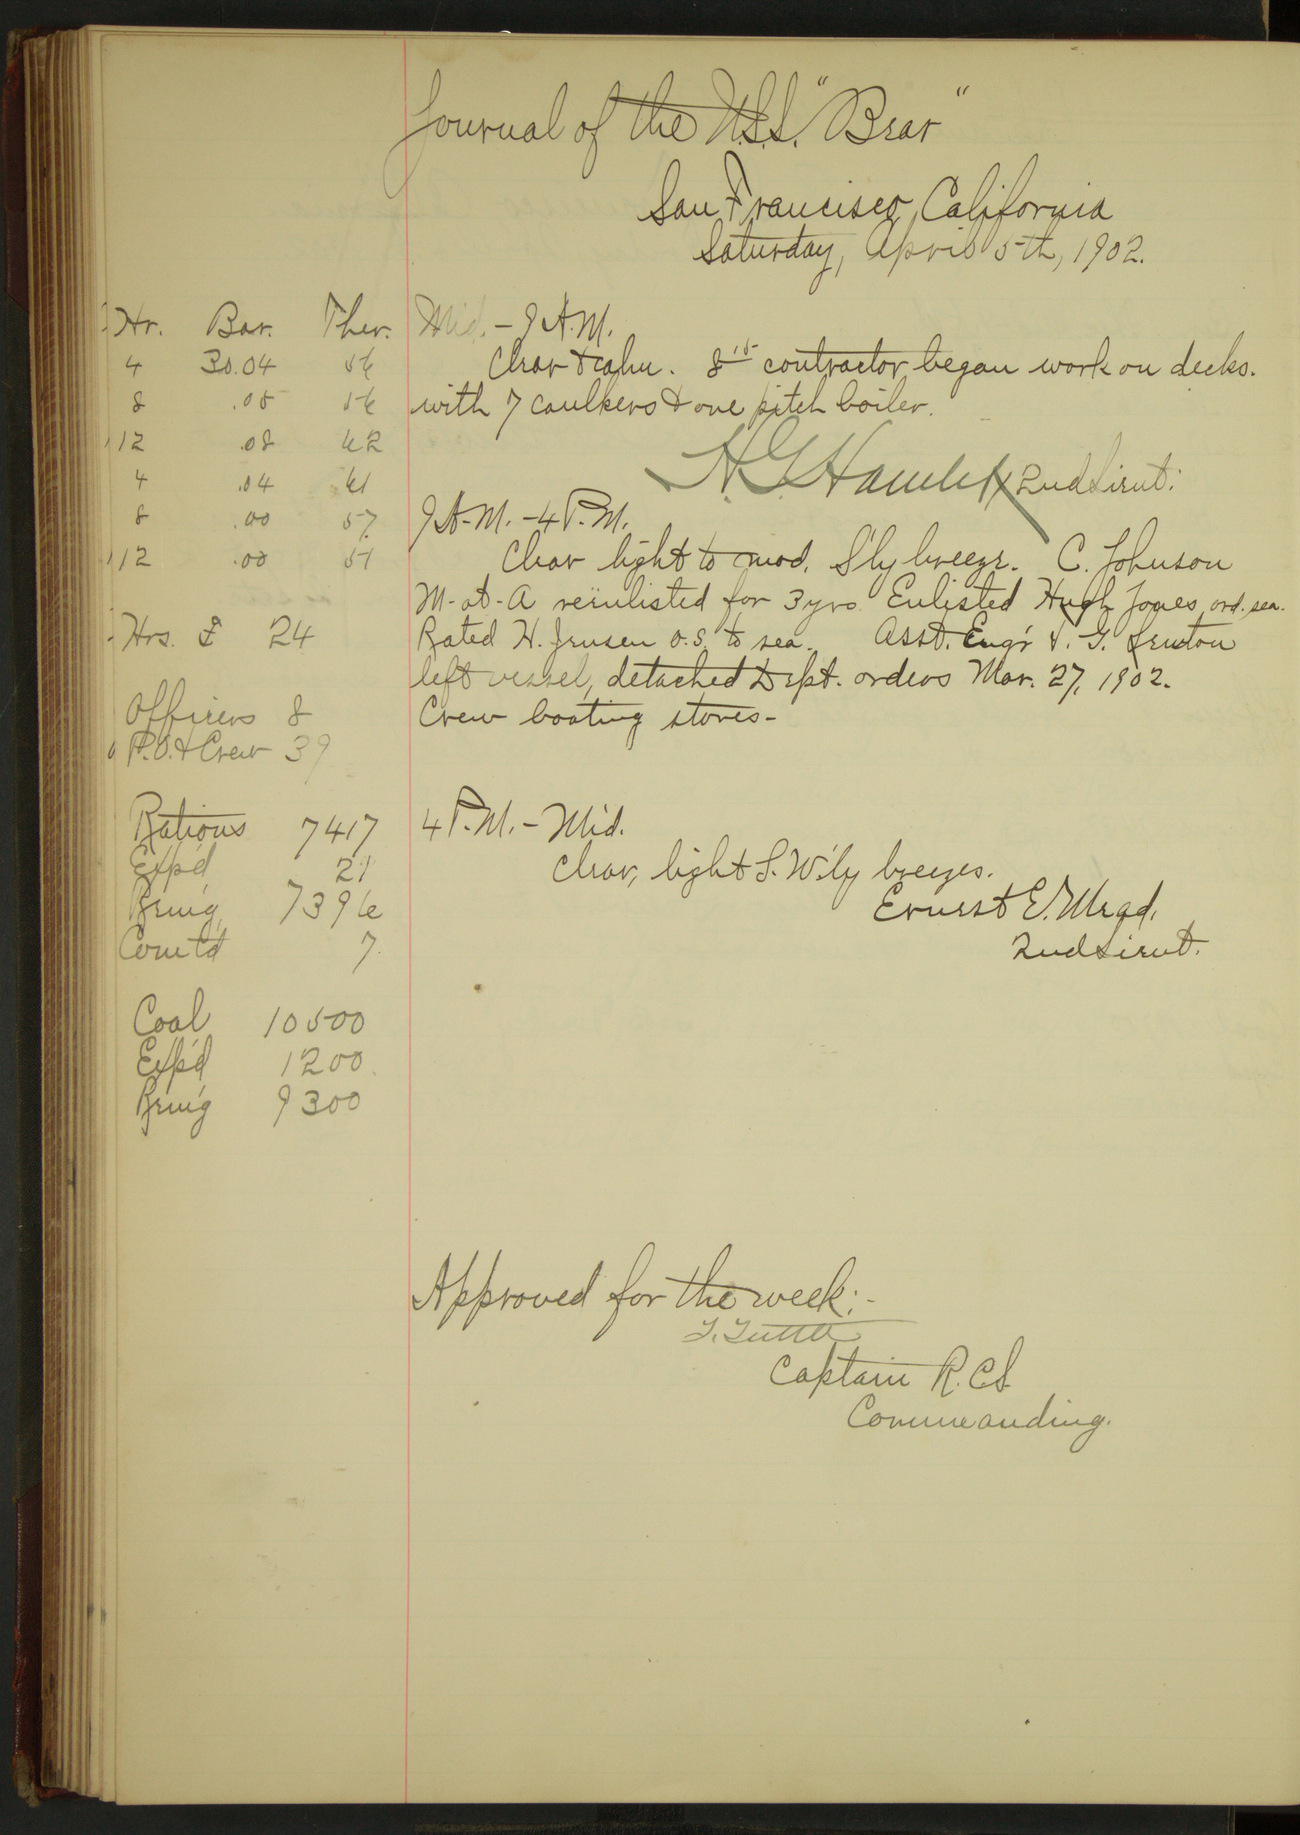 Journal of the U.S.S. "Bear"
San Francisco, California
Saturday, April 5th, 1902.
Hr. Bar. Ther.
4 30.04 56
8 .05 56
12 .08 62
4 .04 61
8 .00 57
12 .00 51
Hrs. 24
Officers 8
P.O. & Crew 39
Rations 7417
Exp'd 21
Rem'g 7396
Com't'd 7.
Coal 10500
Exp'd 1200
Rem'g 9300
Mid. - 9 A.M.
Clear & calm. 8 15 contractor began work on decks.
with 7 caulkers & one pitch boiler.
H.G. Hamlet 2nd Lieut.
9 A.M. - 4 P.M.
Clear light to mod. S'ly breeze. C. Johnson
M-at-A reinlisted for 3 yrs. Enlisted Hugh Jones, ord. sea.
Rated H. Jensen O.S. to sea. Asst. Eng'r G.
left vessel, detached Dept. orders Mar. 27, 1902.
Crew boating stores-
4 P.M. - Mid.
Clear, light S.W'ly breezes.
Ernest E. Mead.
2nd Lieut.
Approved for the week:-
F. Tuttle
Captain R.C.S.
Commeanding.